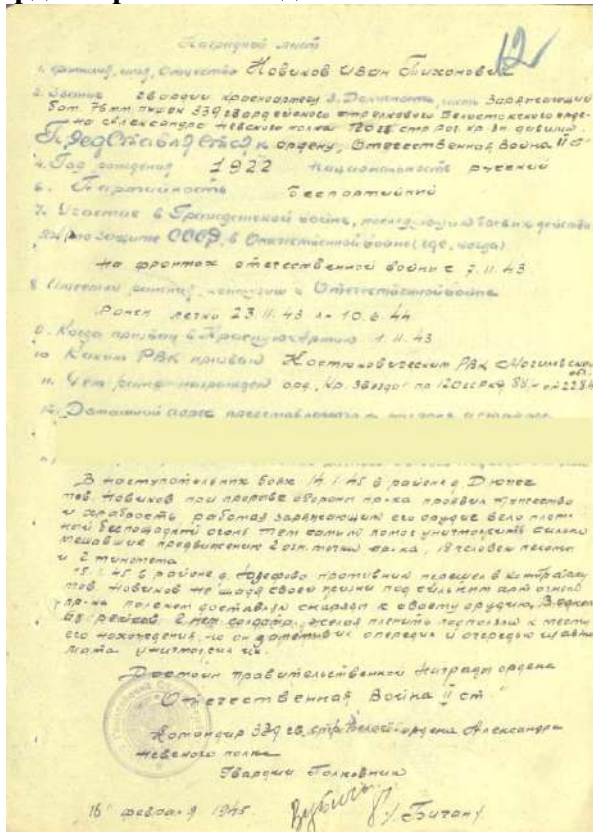 12
Наградной лист
1. Фамилия, имя, Отчество Новиков Иван Тихонович
2. Звание гвардии красноармеец 3. Должность, часть Заряжающий
бат. 76 мм пушек 339 гвардейского стрелкового Белостокского орде-
на Александра Невского полка 120 гв стр Рог. кр зн дивизии.
Представляется к ордену, Отечественная Война II ст"
4. Год рождения 1922 национальность русский
6. Партийность беспортийный
7. Участие в Гражданской войне, последующих боевых действи
ях по защите СССР, в Отечественной войне (где, когда)
на фронтах отечественной войны с 7.11.43.
8. Имеет ли ранения, контузии в Отечественной войне
Ранен легко 23.11.43 10.6.44
9. Когда призван в Красную Армию 1.11.43
10 Каким РВК призван Костюковическим РВК Могилевской
обл.
11. Чем ранее награжден орд, Кр. Звезда пр 120
12. Домашний адрес представляемого к
В наступательных боях 14.1.45 в районе д Дюнес
тов. Новиков при прорыве обороны пр-ка проявил мужество
и храбрость, работая заряжающим его орудие вело плот-
ной беспощадный огонь тем самым помог уничтожить сильно
мешавшие продвижению 2 огн. точки пр-ка, 18 человек пехоты
и 2 миномета.
15.1.45 в районе д. Юзефово противник перешел в контратаку
тов. Новиков не щадя своей жизни под сильным арт огнем
пр-ка ползком доставлял снаряды к своему орудию, В один
из рейсов 2 нем солдата, желая пленить подползли к месту
его нохождения, но он опередил и очередью из авто
мата уничтожил их.
Достоин правительственной Награды ордена
"Отечественная Война II ст."
Командир 339 гв. стр. Белост. ордена Александра
Невского полка
Гвардии Полковник
16 февраля 1945 /Бичан/